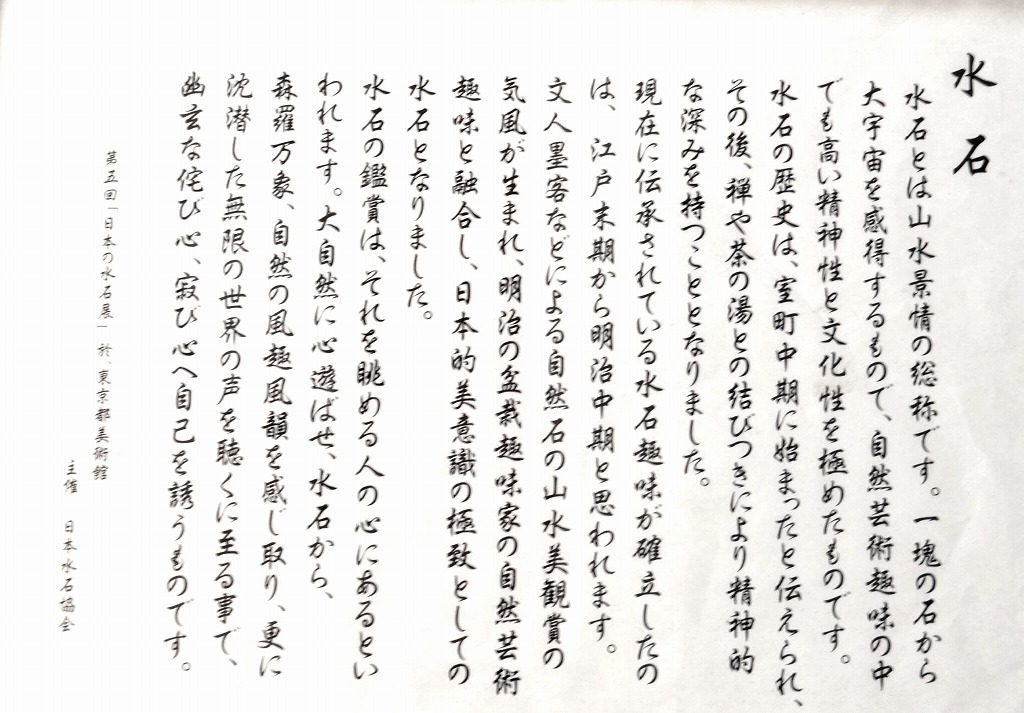 水石
水石とは山水景情の総称です。一塊の石から
大宇宙を感得するもので、自然芸術趣味の中
でも高い精神性と文化性を極めたものです。
水石の歴史は、室町中期に始まったと伝えられ、
その後、禅や茶の湯との結びつきにより精神的
な深みを持つこととなりました。
現在に伝承されている水石趣味が確立したの
は、江戸末期から明治中期と思われます。
文人墨客などによる自然石の山水美観賞の
気風が生まれ、明治の盆栽趣味家の自然芸術
趣味と融合し、日本的美意識の極致としての
水石となりました。
水石の鑑賞は、それを眺める人の心にあるとい
われます。大自然に心遊ばせ、水石から、
森羅万象、自然の風趣風韻を感じ取り、更に
沈潜した無限の世界の声を聴くに至る事で、
幽玄な侘び心、寂び心へ自己を誘うものです。
第五回「日本の水石展」於、東京都美術館
主催 日本水石協会